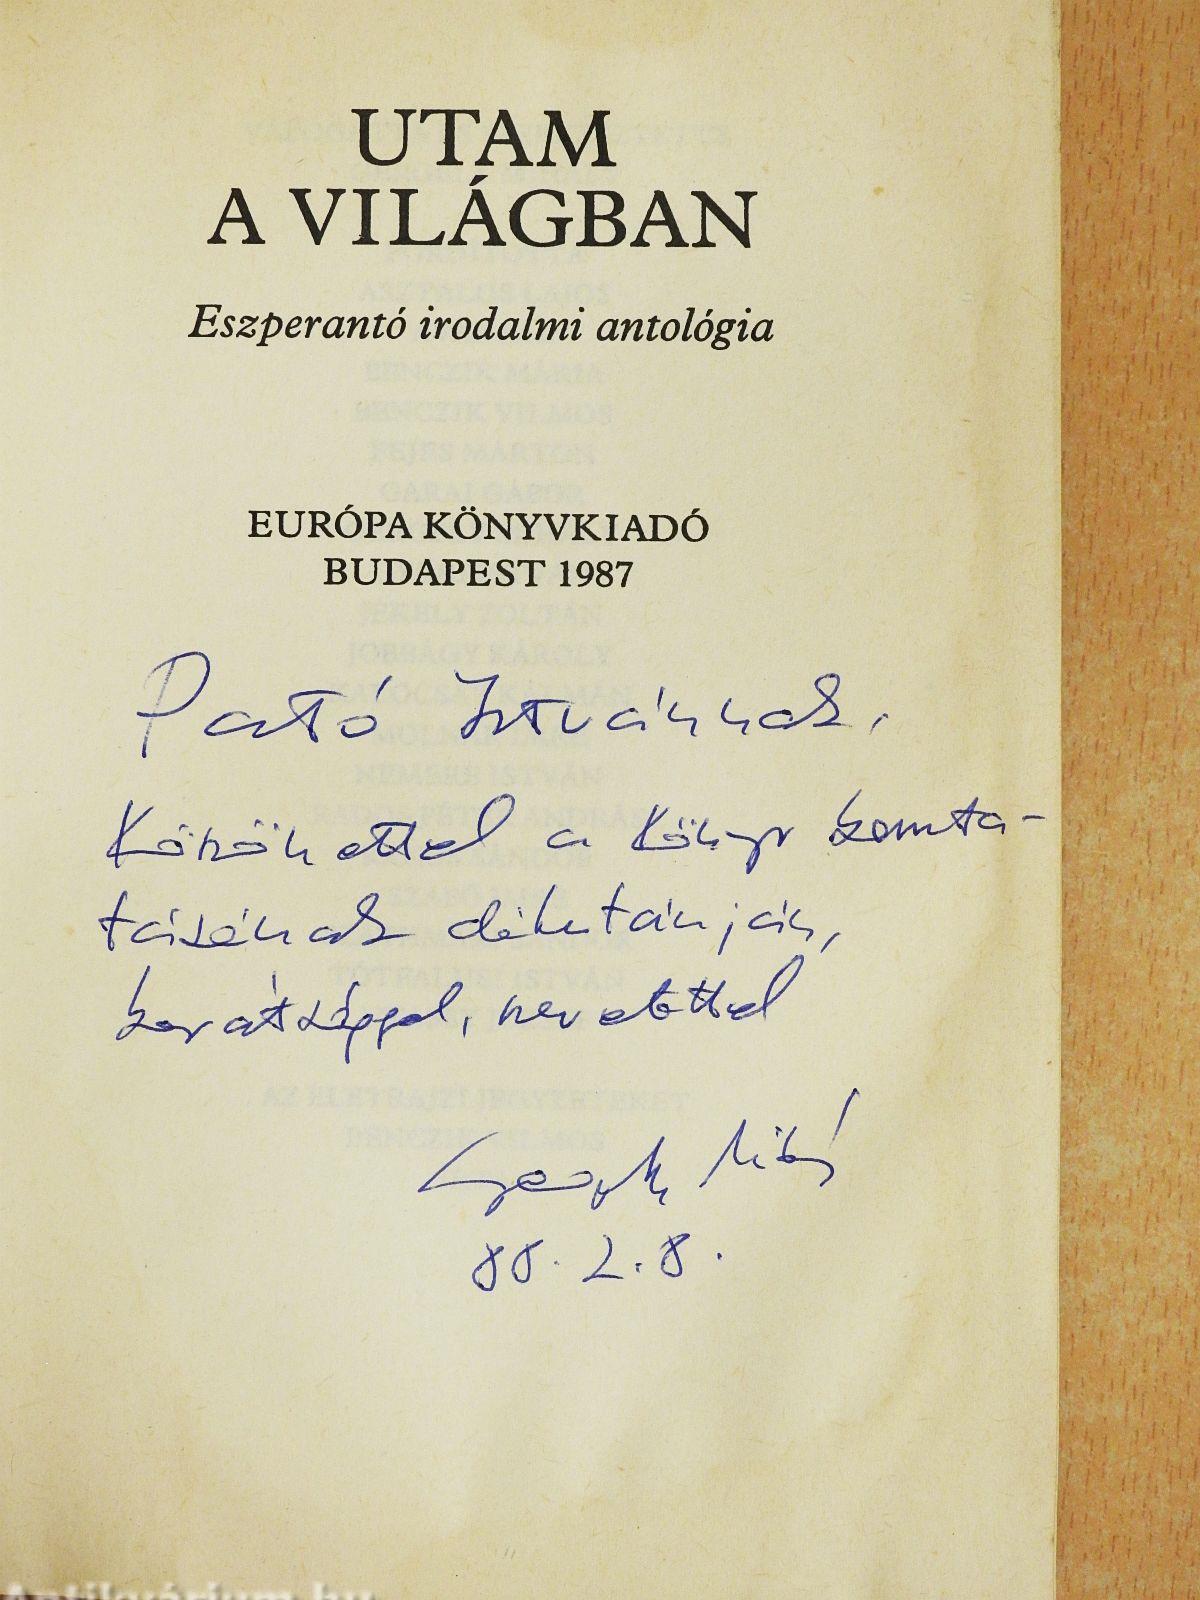 UTAM
A VILÁGBAN
Eszperantó irodalmi antológia
EURÓPA KÖNYVKIADÓ
BUDAPEST 1987
Pató Istvánnak,
Köszönettel a könyv bemuta-
tásának délutánján,
barátsággal, szeretettel
88. 2. 8.
Antikvárium.hu